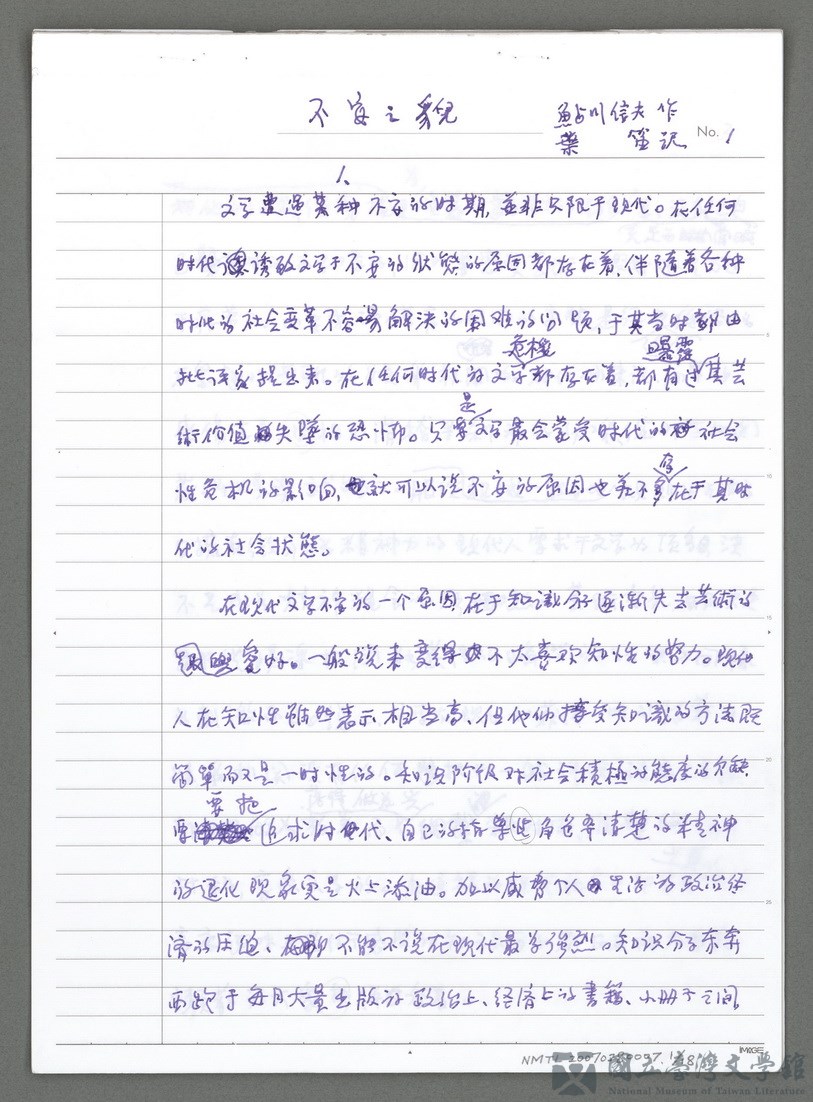 不安之貌
鮎川信夫作
葉笛记
No. 1
1、
文学遭遇某种不安的时期，並非只限于现代。在任何
时代诱致文学于不安的状態的原因都存在着，伴随着各种
时代的社会变革不容易解决的困难的问题，于其当时都由
危機 曝露
批评家提出来。在任何时代的文学都存在着，都有过其芸
是
術价值失墜的恐怖。只要文学最会蒙受时代的社会
存
性危机的影响，就可以说不安的原因也差不多在于其时
代的社会状態。
在现代文学不安的一个原因在于知識分子逐漸失去芸術的
興愛好。一般说来变得不太喜欢知性的努力。现代
人在知性虽然表示相当高，但他们接受知識的方法既
简單而又是一时性的。知识阶级对社会積極的態度的欠缺，
要把
追求时代、自己的指導角色弄清楚的精神
的退化现象更是火上添油。加以威脅个人生活的政治经
濟的压迫，不能不说在现代最为强烈。知识分子东奔
西跑于每月大量出版的政治上、经濟上的書籍、小册子之间
IMAGE
NMTL 20070220037.1/18
國立臺灣文學館
National Museum of Taiwan Literature